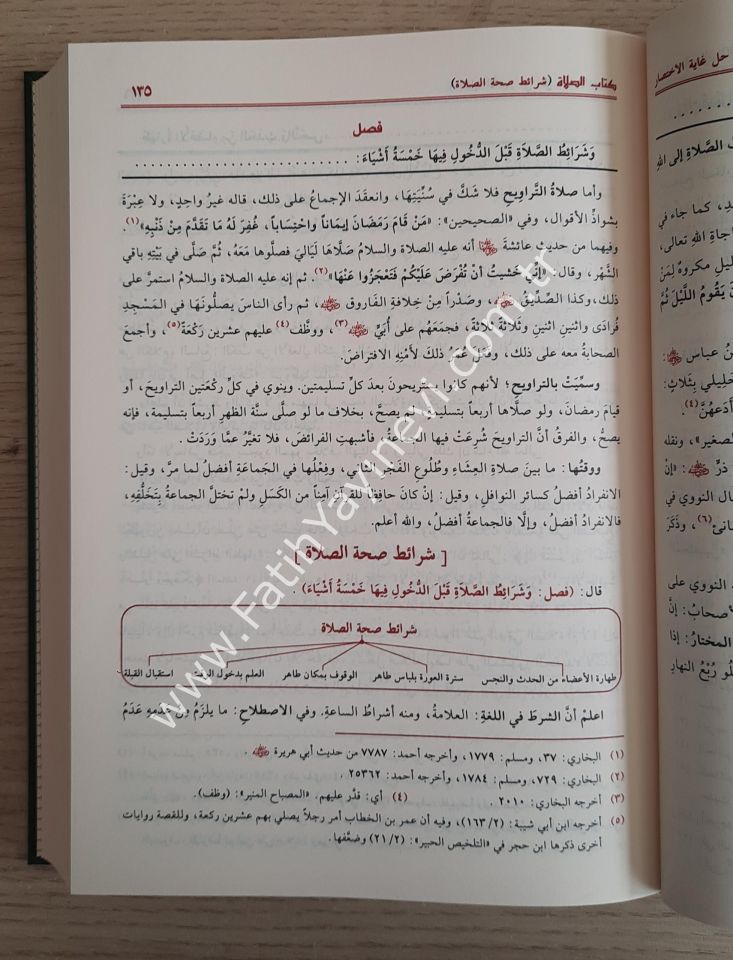 كتاب الصلاة (شرائط صحة الصلاة) ١٣٥
فصل
وَشَرَائِطُ الصَّلَاةِ قَبْلَ الدُّخُولِ فِيهَا خَمْسَةُ أَشْيَاءَ: . . . . . . . . . . . . . . . . . . . .
وأما صلاةُ التَّراويحِ فلا شكَّ في سُنِّيَتِهَا، وانعقدَ الإجماعُ على ذلك، قاله غيرُ واحِدٍ، ولا عِبْرَةَ
بشواذِّ الأقوال، وفي «الصحيحين»: «مَنْ قَامَ رَمَضَانَ إيمَاناً واحْتِسَاباً، غُفِرَ لَهُ مَا تَقَدَّمَ مِنْ ذَنْبِهِ»(١).
وفيهما من حديثِ عائشةَ رضي الله عنها أنه عليه الصلاة والسلامُ صَلَّاها لَيَاليَ فصلَّوها مَعَهُ، ثُمَّ صَلَّى في بَيْتِهِ باقي
الشَّهْر، وقال: «إنِّي خَشيتُ أنْ تُفْرَضَ عَلَيْكُمْ فَتَعْجَزُوا عَنْهَا»(٢). ثم إنه عليه الصلاة والسلامُ استمرَّ على
ذلك، وكذا الصِّدِّيقُ رضي الله عنه، وصَدْراً مِنْ خِلافةِ الفَاروقِ رضي الله عنه، ثم رأى الناسَ يصلُّونَهَا في المَسْجدِ
فُرادَى واثنينِ اثنينِ وثَلاثةً ثَلاثةً، فجمَعَهُم على أُبَيٍّ رضي الله عنه(٣)، ووظَّف(٤) عليهم عشرين رَكْعَةً(٥)، وأجمعَ
الصحابةُ معه على ذلك، وفَعَلَ عُمَرُ ذلكَ لأَمْنِهِ الافتراضَ.
وسمِّيَتْ بالتراويحِ؛ لأنهم كانوا يستريحونَ بعدَ كلِّ تسليمتين. وينوي في كلِّ رَكْعَتين التراويحَ، أو
قيامَ رمضانَ، ولو صلَّاها أربعاً بتسليمةٍ لم يصحَّ، بخلاف ما لو صلَّى سنَّةَ الظهرِ أربعاً بتسليمة، فإنه
يصحُّ، والفرقُ أنَّ التراويحَ شُرعَتْ فيها الجماعةُ، فأشبهتِ الفرائضَ، فلا تغيَّرُ عمَّا وَرَدَتْ.
ووقتُها: ما بينَ صلاةِ العِشَاءِ وطُلوعِ الفَجْرِ الثاني، وفِعْلُها في الجَماعةِ أفضلُ لما مرَّ، وقيل:
الانفرادُ أفضلُ كسائرِ النوافلِ، وقيل: إنْ كانَ حافظاً للقُرآنِ آمناً من الكَسَلِ ولمْ تختلَّ الجماعةُ بِتَخَلُّفِهِ،
فالانفرادُ أفضلُ، وإلَّا فالجماعةُ أفضلُ، والله أعلم.
[ شرائط صحة الصلاة ]
قال: (فصل: وَشَرَائِطُ الصَّلَاةِ قَبْلَ الدُّخُولِ فِيهَا خَمْسَةُ أَشْيَاءَ).
شرائط صحة الصلاة
طهارة الأعضاء من الحدث والنجس
سترة العورة بلباس طاهر
الوقوف بمكان طاهر
العلم بدخول الوقت
استقبال القبلة
اعلمْ أنَّ الشرطَ في اللغةِ: العلامةُ، ومنه أشراطُ الساعةِ. وفي الاصطلاحِ: ما يلزَمُ مِنْ عَدَمِهِ عَدَمُ
(١) البخاري: ٣٧، ومسلم: ١٧٧٩، وأخرجه أحمد: ٧٧٨٧ من حديث أبي هريرة رضي الله عنه.
(٢) البخاري: ٧٢٩، ومسلم: ١٧٨٤، وأخرجه أحمد: ٢٥٣٦٢.
(٣) أخرجه البخاري: ٢٠١٠. (٤) أي: قدَّر عليهم. «المصباح المنير»: (وظف).
(٥) أخرجه ابن أبي شيبة: (١٦٣/٢)، وفيه أن عمر بن الخطاب أمر رجلاً يصلي بهم عشرين ركعة، وللقصة روايات
أخرى ذكرها ابن حجر في «التلخيص الحبير»: (٢١/٢) وضعَّفها.
حل غاية الاختصار
الصَّلاة إلى اللهِ
كما جاء في
اللهِ تعالى،
مكروهٌ لِمَنْ
يَقُومُ اللَّيْلَ ثُمَّ
عباس
خَلِيلي بِثَلاثٍ:
أَدَعَهُنَّ(٤).
الصغير»، ونقله
ذرٍّ رضي الله عنه: «إنْ
النووي في
(٦)، وذَكَرَ
النووي على
إنْ
المختارُ: إذا
رُبْعُ النهارِ
www.FatihYayinevi.com.tr